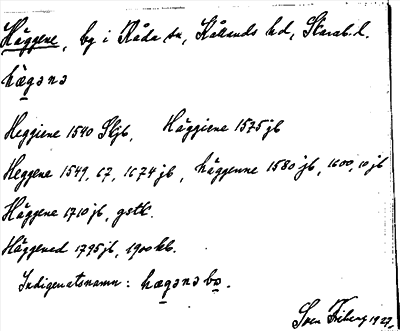 Häggene, by i Råda sn, Kållands hd, Skarab. l.
hægənə
Heggiene 1540 Skjb, Häggiene 1575 jb
Heggene 1549, 67, 1674 jb, häggenne 1580 jb, 1600, 10 jb
Häggene 1710 jb, gstk.
Häggened 1795 jb, 1900 kb.
Indigenatsnamn: hægənəbo.
Sven Friberg 1927.